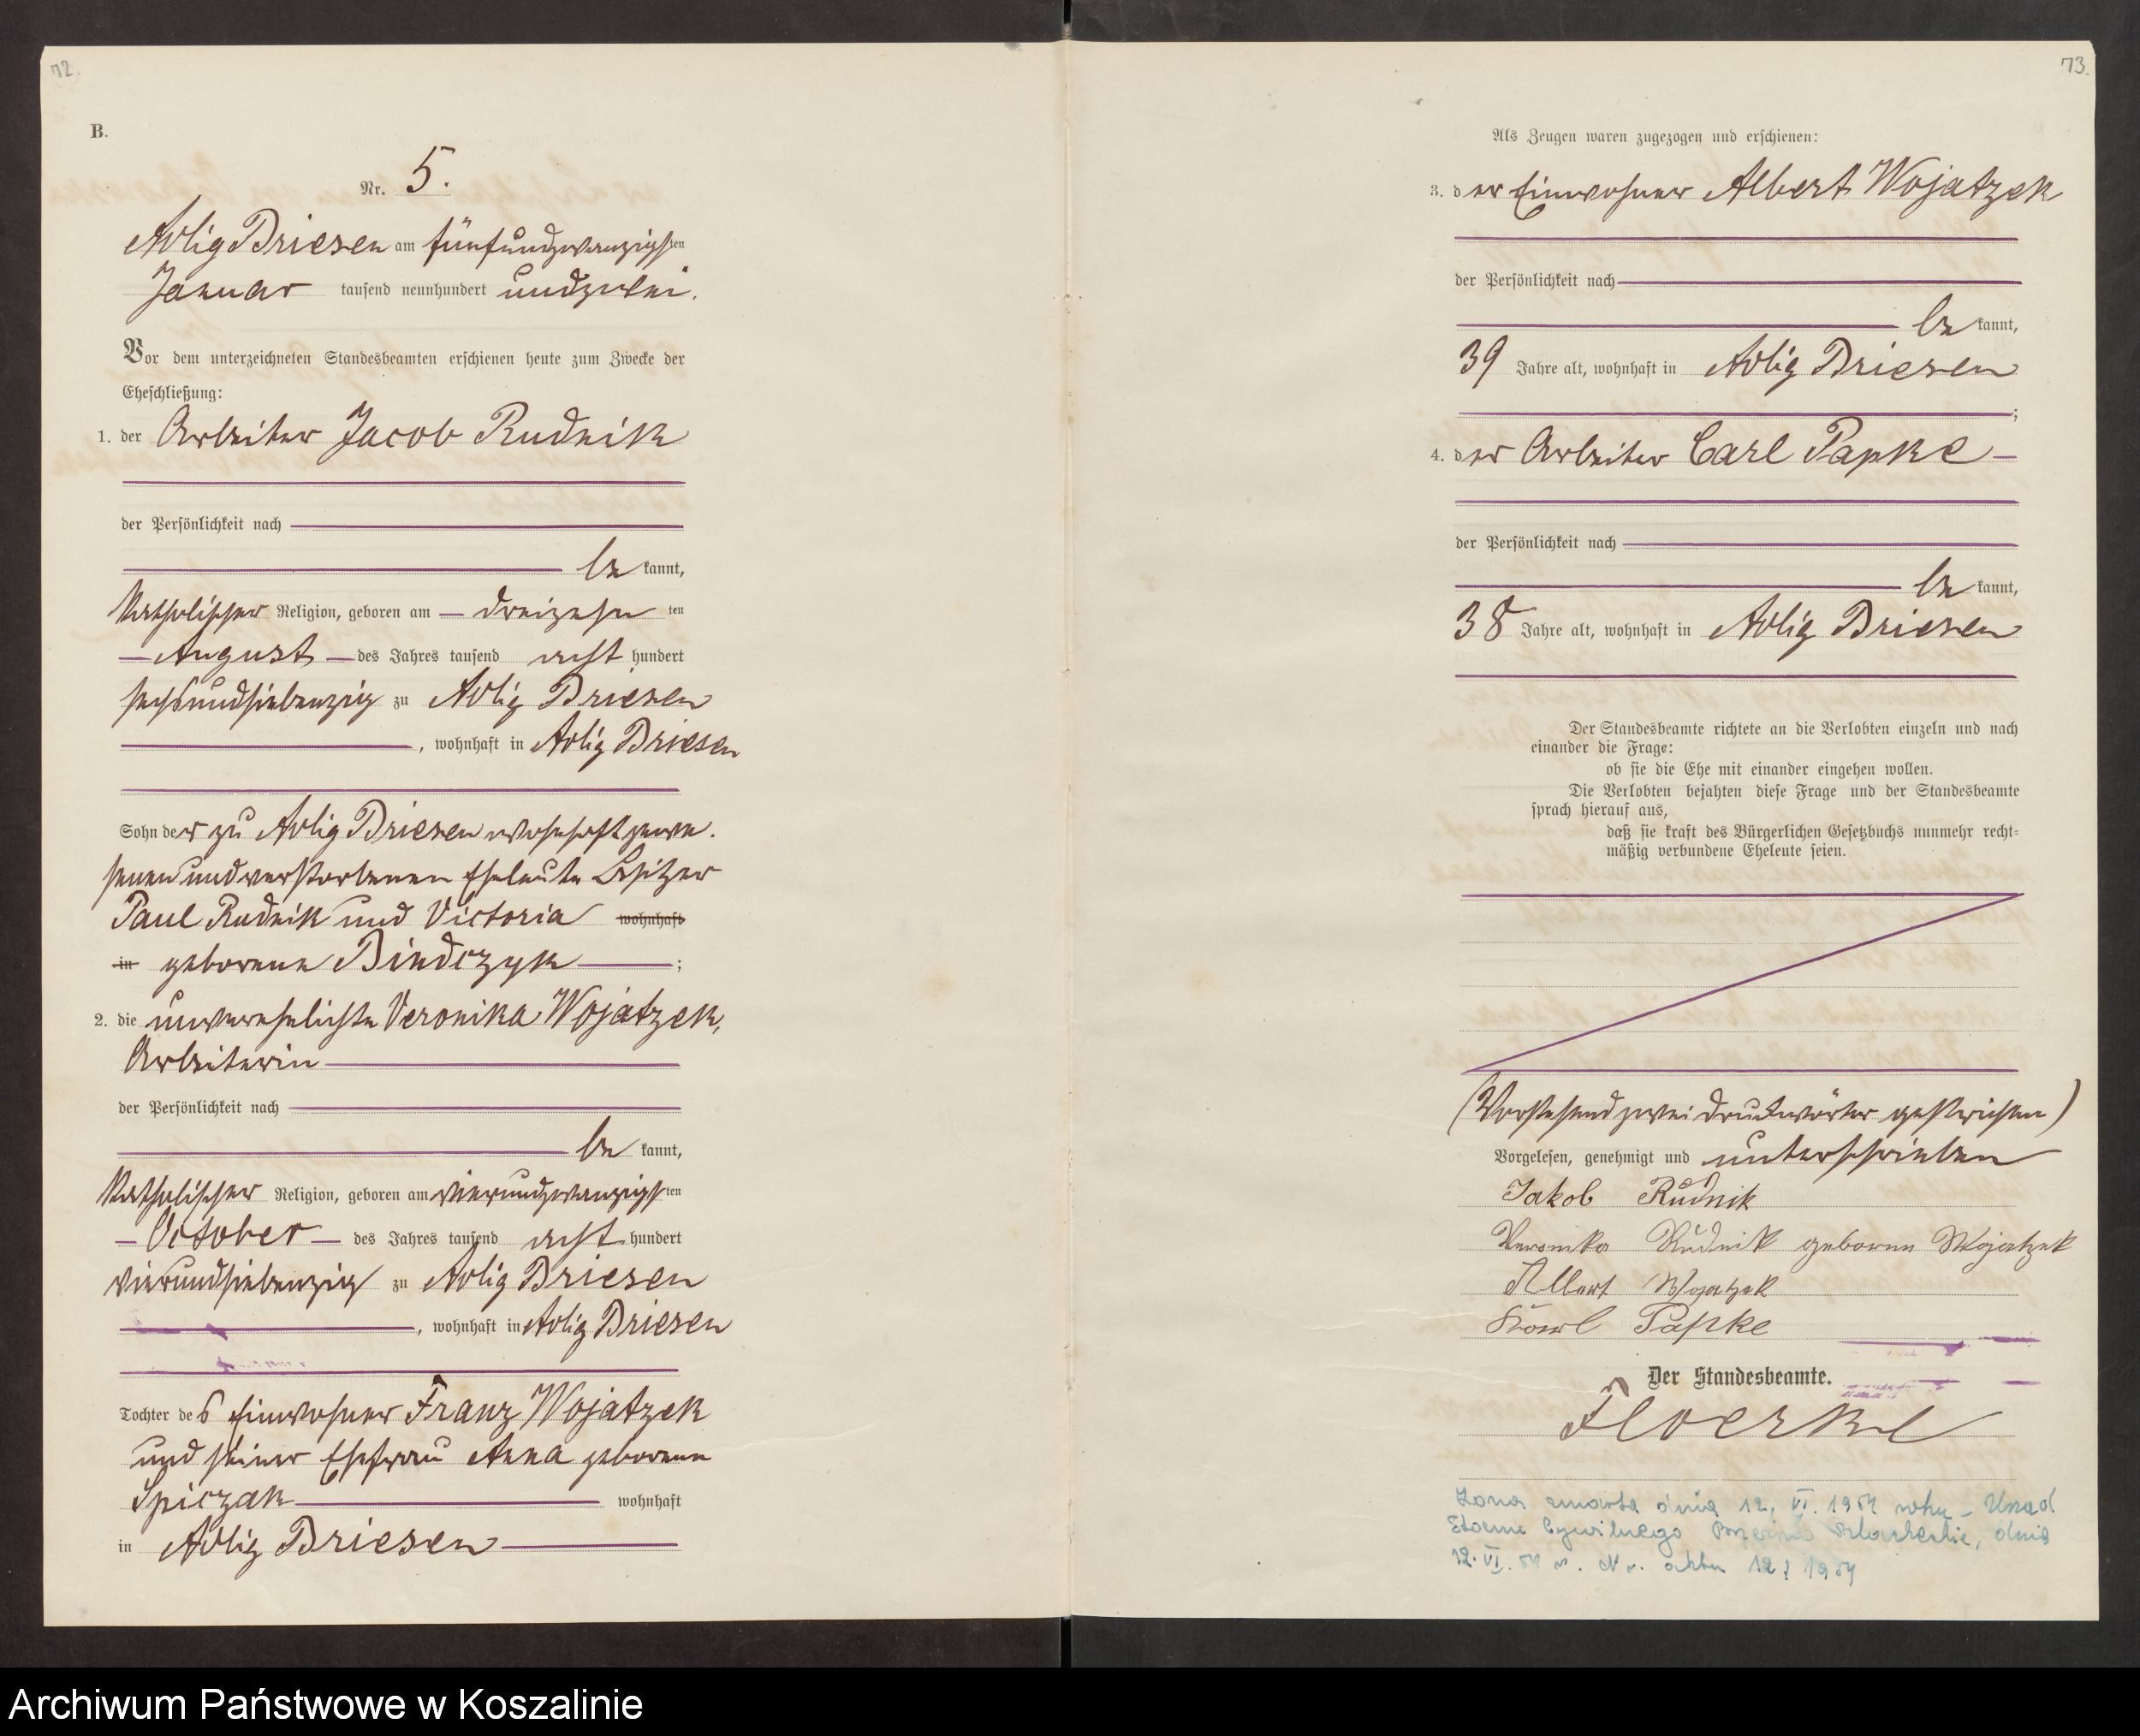 72.
B.
Nr. 5.
Adlig Briesen am fünfundzwanzigsten
Januar tausend neunhundert undzwei.
Vor dem unterzeichneten Standesbeamten erschienen heute zum Zwecke der
Eheschließung:
1. der Arbeiter Jacob Rudnik
der Persönlichkeit nach
be kannt,
katholischer Religion, geboren am dreizehn ten
August des Jahres tausend acht hundert
sechsundsiebenzig zu Adlig Briesen
, wohnhaft in Adlig Briesen
Sohn der zu Adlig Briesen wohnhaft gewe-
senen und verstorbenen Eheleute Besitzer
Paul Rudnik und Victoria wohnhaft
in geborene Bindczyk ;
2. die unverehelichte Veronika Wojatzek,
Arbeiterin
der Persönlichkeit nach
be kannt,
katholischer Religion, geboren am vierundzwanzigsten
October des Jahres tausend acht hundert
vierundsiebenzig zu Adlig Briesen
, wohnhaft in Adlig Briesen
Tochter des Einwohner Franz Wojatzek
und seiner Ehefrau Anna geborene
Spiczak wohnhaft
in Adlig Briesen
73.
Als Zeugen waren zugezogen und erschienen:
3. der Einwohner Albert Wojatzek
der Persönlichkeit nach
be kannt,
39 Jahre alt, wohnhaft in Adlig Briesen
;
4. der Arbeiter Carl Papke
der Persönlichkeit nach
be kannt,
38 Jahre alt, wohnhaft in Adlig Briesen
Der Standesbeamte richtete an die Verlobten einzeln und nach
einander die Frage:
ob sie die Ehe mit einander eingehen wollen.
Die Verlobten bejahten diese Frage und der Standesbeamte
sprach hierauf aus,
daß sie kraft des Bürgerlichen Gesetzbuchs nunmehr recht-
mäßig verbundene Eheleute seien.
(Vorstehend zwei Druckwörter gestrichen)
Vorgelesen, genehmigt und unterschrieben
Jakob Rudnik
Veronika Rudnik geboren Wojatzek
Albert Wojatzek
Karl Papke
Der Standesbeamte.
Floerke
Żona zmarła dnia 12. VI. 1954 roku – Urząd
Stanu Cywilnego dnia
12. VI. 54 r. Nr. aktu 12/1954
Archiwum Państwowe w Koszalinie